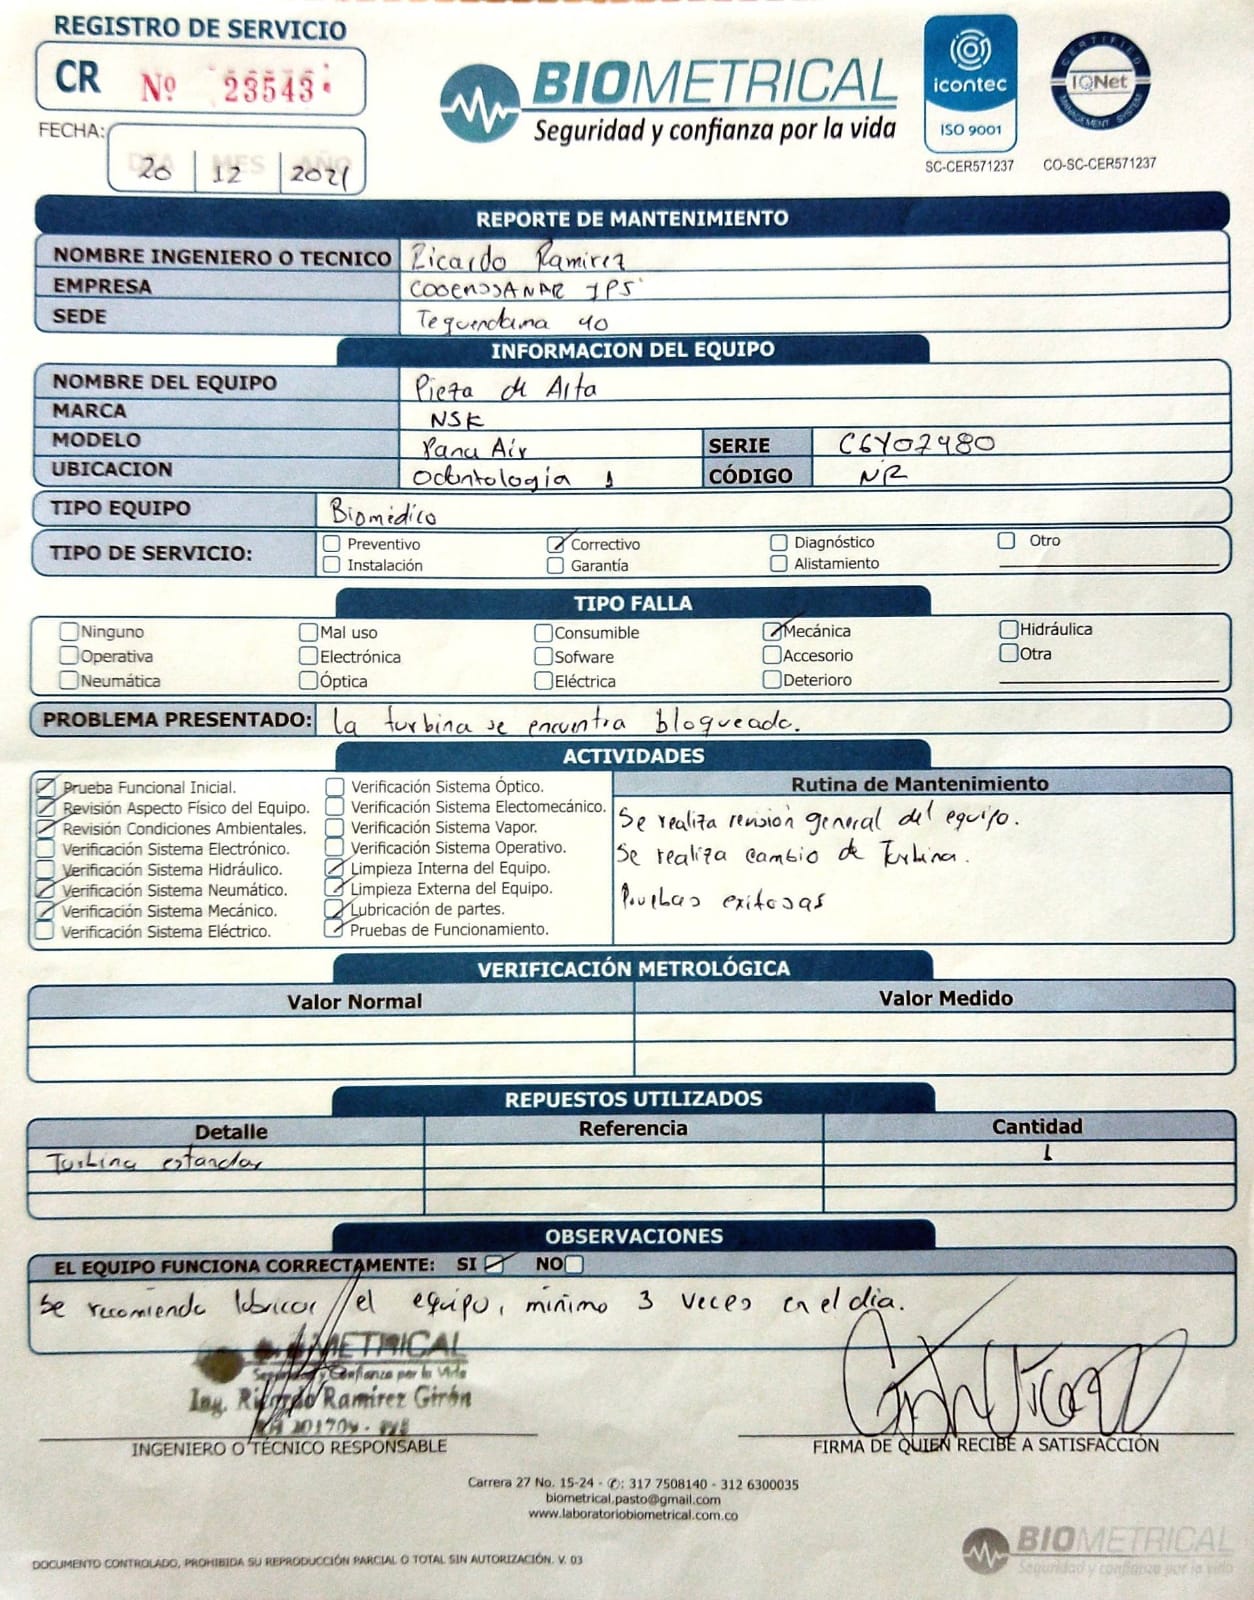 REGISTRO DE SERVICIO
CR Nº 23543
BIOMETRICAL
Seguridad y confianza por la vida
icontec
ISO 9001
SC-CER571237
CERTIFIED
IQNet
MANAGEMENT SYSTEM
CO-SC-CER571237
FECHA:
DIA MES AÑO
20 12 2021
REPORTE DE MANTENIMIENTO
NOMBRE INGENIERO O TECNICO Ricardo Ramirez
EMPRESA COOEMSSANAR IPS
SEDE Tequendama 40
INFORMACION DEL EQUIPO
NOMBRE DEL EQUIPO Pieza de Alta
MARCA NSK
MODELO Pana Air SERIE C6Y07480
UBICACION Odontología 1 CÓDIGO NR
TIPO EQUIPO Biomédico
TIPO DE SERVICIO: Preventivo Correctivo Diagnóstico Otro
Instalación Garantía Alistamiento
TIPO FALLA
Ninguno Mal uso Consumible Mecánica Hidráulica
Operativa Electrónica Sofware Accesorio Otra
Neumática Óptica Eléctrica Deterioro
PROBLEMA PRESENTADO: la turbina se encuntra bloqueada.
ACTIVIDADES
Prueba Funcional Inicial.
Revisión Aspecto Físico del Equipo.
Revisión Condiciones Ambientales.
Verificación Sistema Electrónico.
Verificación Sistema Hidráulico.
Verificación Sistema Neumático.
Verificación Sistema Mecánico.
Verificación Sistema Eléctrico.
Verificación Sistema Óptico.
Verificación Sistema Electomecánico.
Verificación Sistema Vapor.
Verificación Sistema Operativo.
Limpieza Interna del Equipo.
Limpieza Externa del Equipo.
Lubricación de partes.
Pruebas de Funcionamiento.
Rutina de Mantenimiento
Se realiza revisión general del equipo.
Se realiza cambio de Turbina.
Pruebas exitosas
VERIFICACIÓN METROLÓGICA
Valor Normal Valor Medido
REPUESTOS UTILIZADOS
Detalle Referencia Cantidad
Turbina estandar 1
OBSERVACIONES
EL EQUIPO FUNCIONA CORRECTAMENTE: SI NO
Se recomienda lubricar el equipo, mínimo 3 veces en el dia.
BIOMETRICAL
Seguridad y Confianza por la Vida
Ing. Ricardo Ramirez Girón
INGENIERO O TÉCNICO RESPONSABLE
FIRMA DE QUIEN RECIBE A SATISFACCIÓN
Carrera 27 No. 15-24 - ✆: 317 7508140 - 312 6300035
biometrical.pasto@gmail.com
www.laboratoriobiometrical.com.co
DOCUMENTO CONTROLADO, PROHIBIDA SU REPRODUCCIÓN PARCIAL O TOTAL SIN AUTORIZACIÓN. V. 03
BIOMETRICAL
Seguridad y confianza por la vida